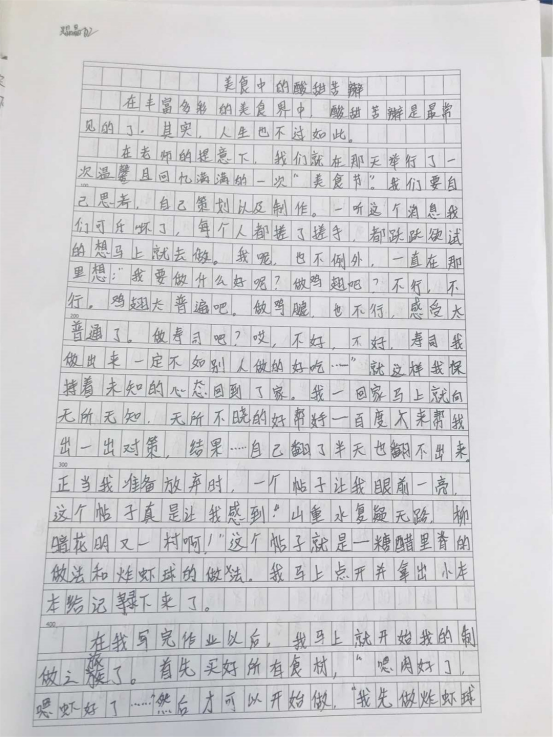 美食中的酸甜苦辣
在丰富多彩的美食界中,酸甜苦辣是最常
见的了。其实,人生也不过如此。
在老师的提意下,我们就在那天举行了一
次温馨且回忆满满的一次“美食节”。我们要自
己思考,自己策划以及制作。一听这个消息我
们可乐坏了,每个人都搓了搓手,都跃跃欲试
的想马上就去做。我呢,也不例外,一直在那
里想:“我要做什么好呢?做鸡翅吧?不行,不
行。鸡翅太普遍吧。做鸭腿,也不行,感受太
200
普通了。做寿司吧?哎,不好,不好,寿司我
做出来一定不如别人做的好吃……”就这样我保
持着未知的心态回到了家。我一回家马上就向
无所无知,无所不晓的好帮手一百度上来帮我
出一出对策,结果……自己翻了半天也翻不出来。
300
正当我准备放弃时,一个帖子让我眼前一亮,
这个帖子真是让我感到“山重水复疑无路,柳
暗花明又一村啊!”这个帖子就是一糖醋里脊的
做法和炸虾球的做法。我马上点开并拿出小本
本给记录下来了。
400
在我写完作业以后,我马上就开始我的制
做之旅了。首先买好所有食材,“嗯肉好了,
嗯虾好了……”然后才可以开始做,“我先做炸虾球